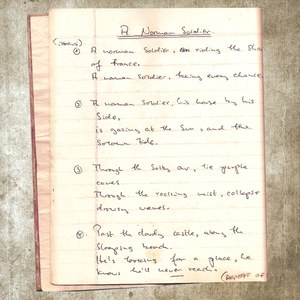 A Norman Soldier.
(intro).
① A norman Soldier, riding the
of France.
A norman Soldier, being every chance
② A norman Soldier, his horse by his
Side,
is gazing at the Sun, and the
Tide.
③ Through the Salty air, lie purple
caves.
Through the mist, collapse
drowsy waves.
④ Past the cloudy castle, along the
Sloaping beach.
He's looking for a place, he
knows he'll never reach.
(REPEAT